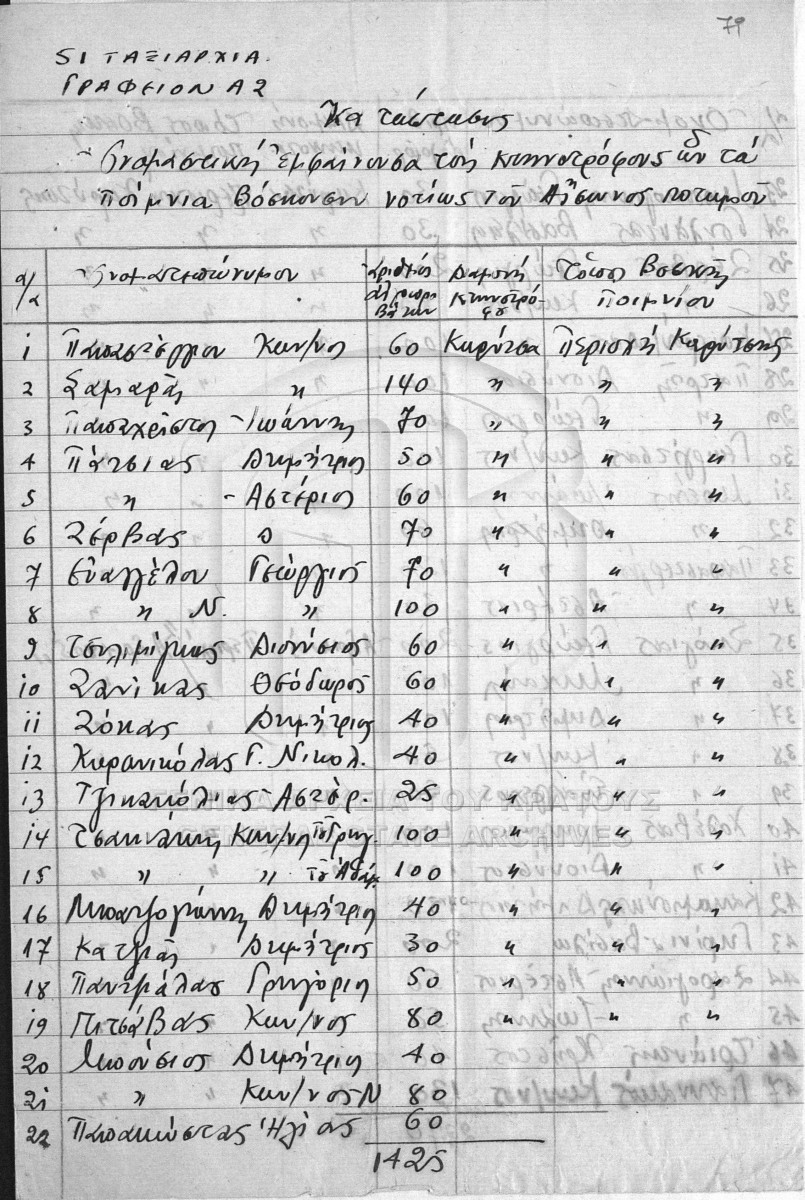 79
51 ΤΑΞΙΑΡΧΙΑ.
ΓΡΑΦΕΙΟΝ Α2
Κατάστασις
Ονομαστική εμφαίνουσα τους κτηνοτρόφους ων τα
ποίμνια βόσκουσιν νοτίως του Αίσωνος ποταμού
α/α Ονοματεπώνυμον Αριθμός Διαμονή κτηνοτρόφου Τόπος Βοσκής Ποιμνίου
1 Παπαστέργιου Κων/νος 60 Καρύτσα Περιοχή Καρύτσης
2 Σαμαράς " 140 " " "
3 Παπαχρήστος Ιωάννης 70 " " "
4 Πάτσιας Δημήτριος 50 " " "
5 " Αστέριος 60 " " "
6 Ζέρβας 70 " " "
7 Ευαγγέλου Γεώργιος 70 " " "
8 " Ν. " 100 " " "
9 Διονύσιος 60 " " "
10 Ζανίκας Θεόδωρος 60 " " "
11 Ζόκας Δημήτριος 40 " " "
12 Καρανικόλας Γ. Νικολ. 40 " " "
13 Αστέρ. 25 " " "
14 Τσακνάκης Κων/νος του Γρηγ. 100 " " "
15 " " του Αδάμ. 100 " " "
16 Μπατζογιάννης Δημήτριος 40 " " "
17 Δημήτριος 30 " " "
18 Γρηγόριος 50 " " "
19 Πιτσάβας Κων/νος 80 " " "
20 Μπούσιος Δημήτριος 40
21 " Κων/νος Ν 80
22 Παπακώστας Ηλίας 60
1425